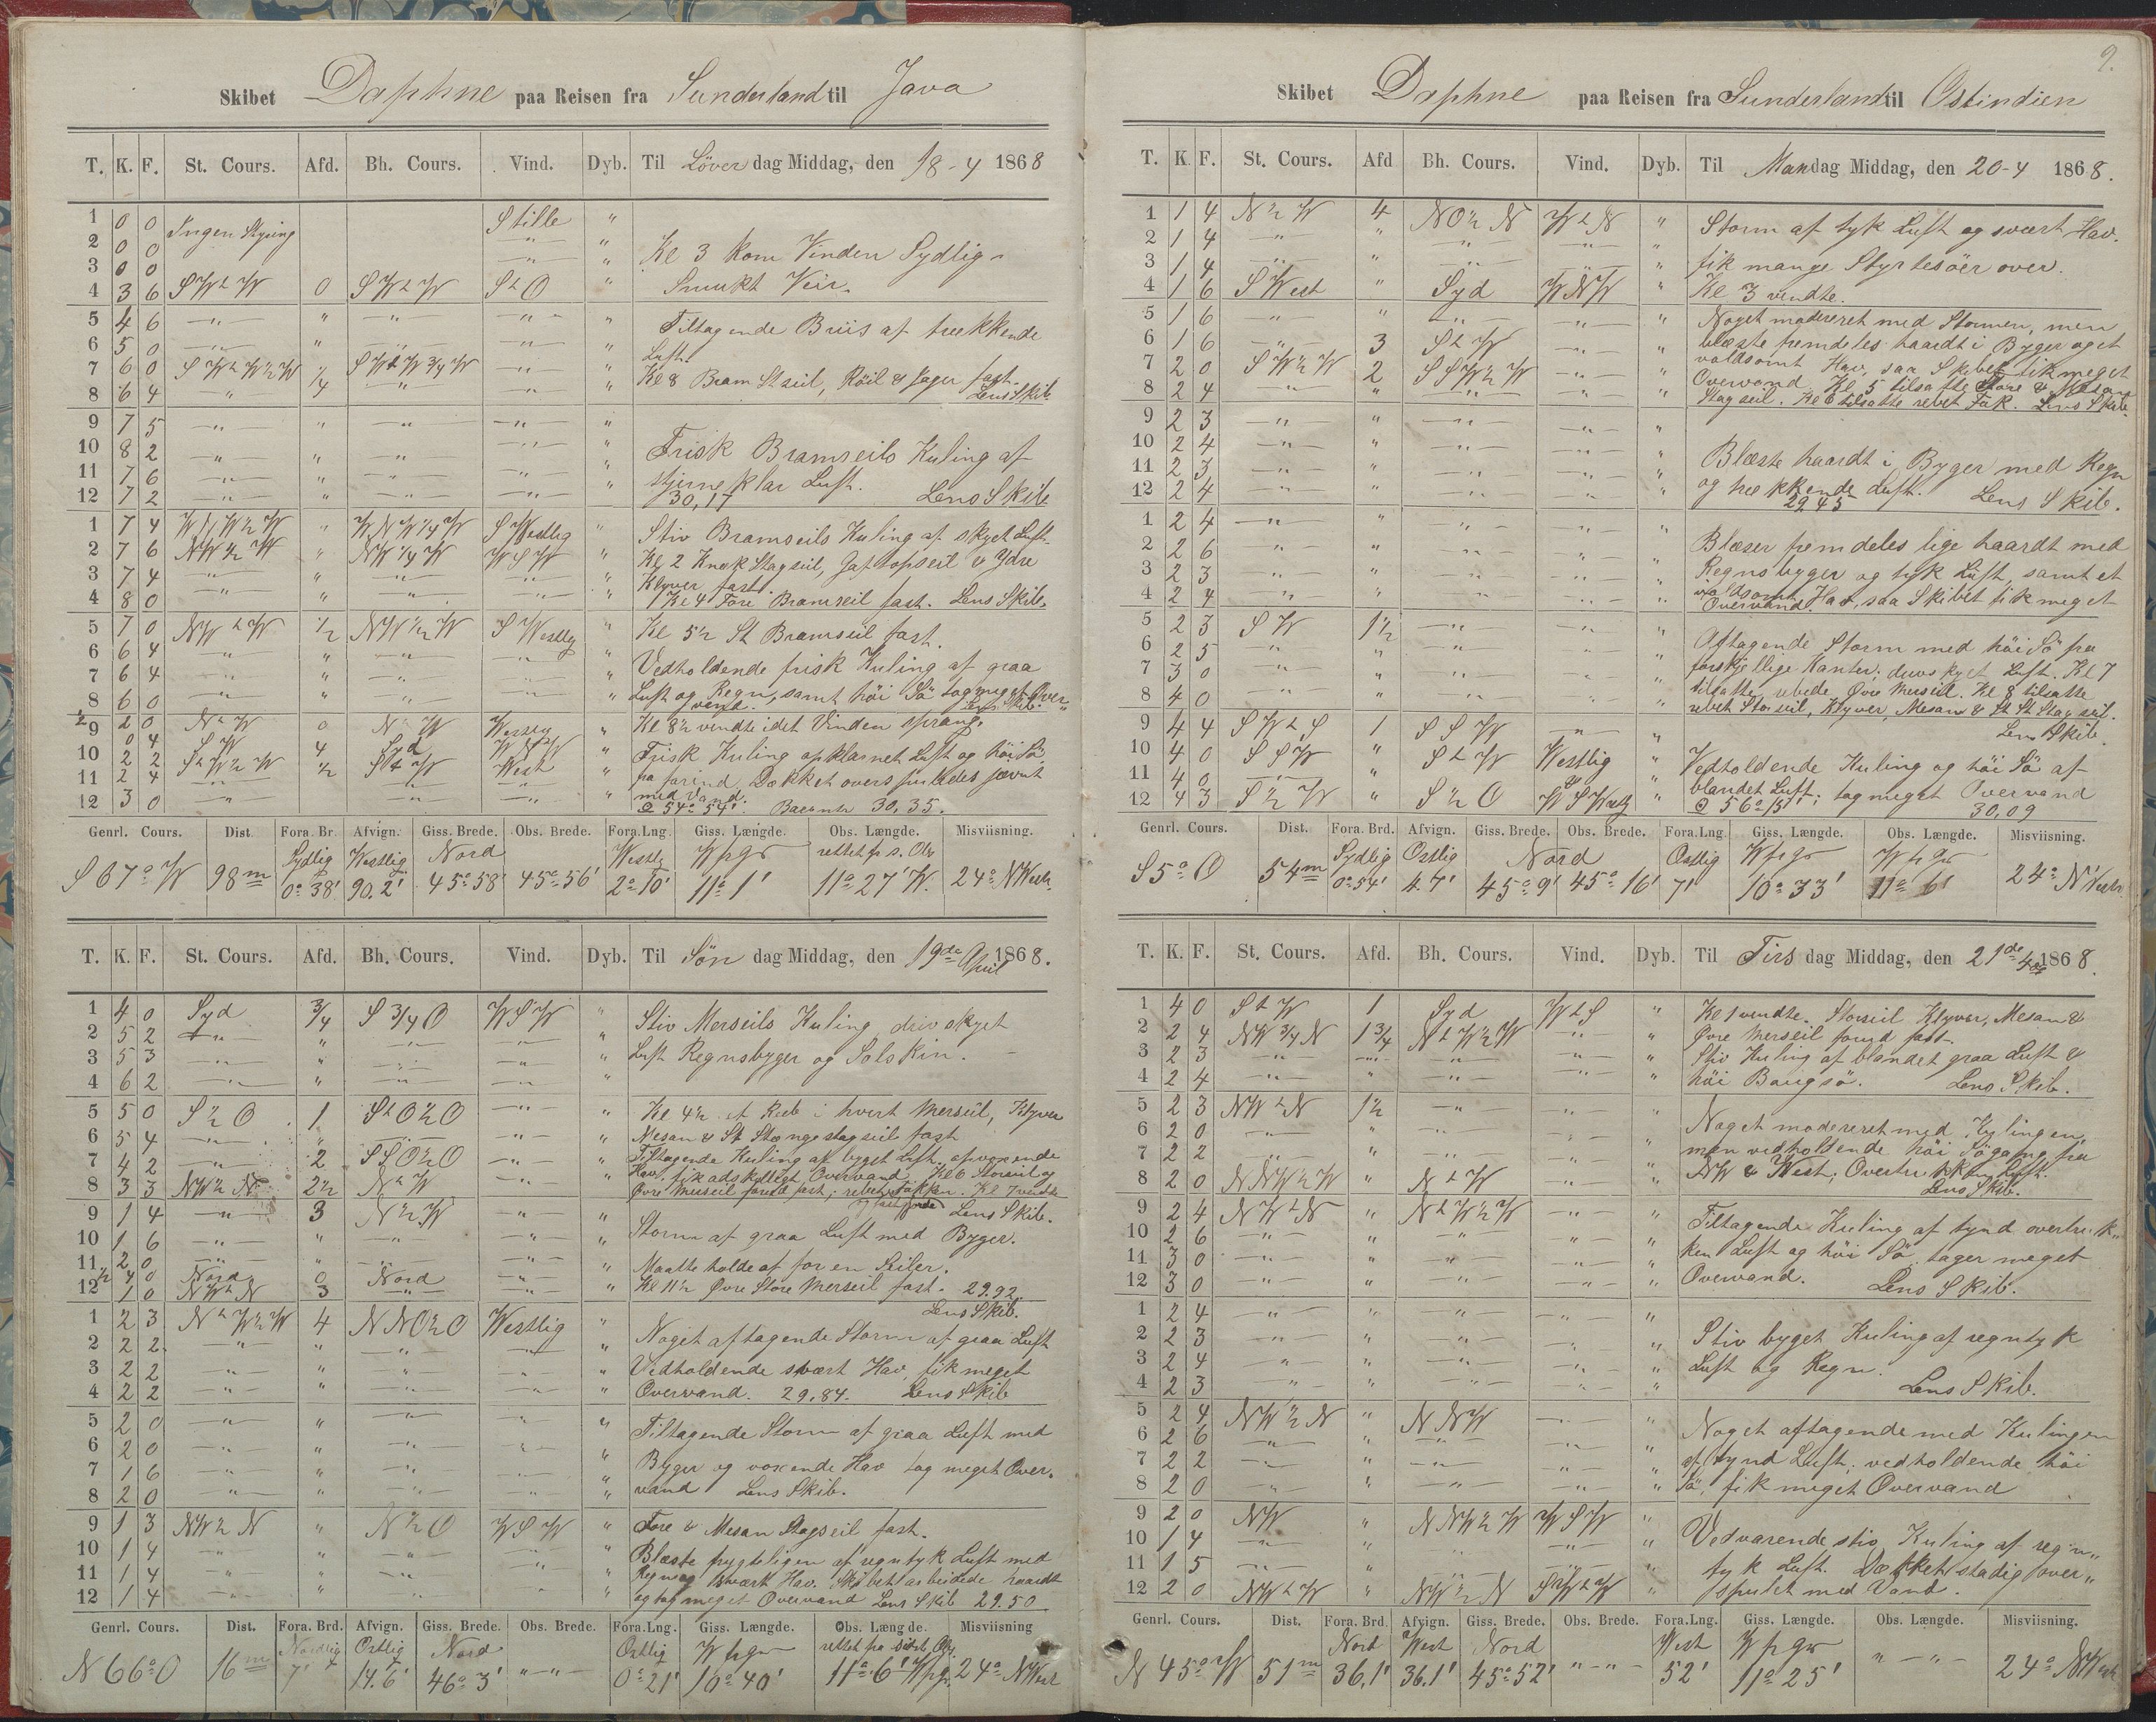 Skibet Daphne paa Reisen fra Sunderland til Java
T. K. F. St. Cours. Afd. Bh. Cours. Vind. Dyb. Til Löverdag Middag, den 18-4 1868
1 0 0 Ingen Styring Stille "
2 0 0 " "
3 0 0 " " Kl 3 kom Vinden Sydlig
4 3 6 SWtW 0 SWtW StO " Smukt Veir.
5 4 6 " " " " " Tiltagende Briis af trækkende
6 5 0 " " " " " Luft.
7 6 0 SWtW½W " SWtW¾W " "
8 6 4 " ¼ " " " Kl 8 Bram St seil, Röil & Jager fast. Lens Skib
9 7 5 " " " " "
10 8 2 " " " " " Frisk Bramseils Kuling af
11 7 6 " " " " " stjerneklar Luft.
12 7 2 " " " " " 30,17 Lens Skib
1 7 4 WNW½W " WNW¼W SWestlig " Stiv Bramseils Kuling af skyet Luft.
2 7 6 NW½W " NW¼W WSW " Kl 2 Knæk Stagseil, Gaftopseil & Ydre
3 7 4 " " " " " Klyver fast.
4 8 0 " " " " " Kl 4 Fore Bramseil fast. Lens Skib.
5 7 0 NWtW ½ NW½W SWestlig " Kl 5½ St Bramseil fast.
6 6 4 " " " " " Vedholdende frisk Kuling af graa
7 6 4 " " " " " Luft og Regn, samt höi Sö tog meget Over
8 6 0 " " " " " vand. Lens Skib.
½ 9 2 0 NtW 0 NtW " Kl 8½ vendte idet Vinden sprang.
0 4 SW 4 Syd WNW
10 2 2 StW½W ½ StW West " Frisk Kuling opklarnet Luft og höi Sö
11 2 4 " " " " " fra forind. Dækket overspuledes jævnt
12 3 0 " " " " " med Vand.
54° 54'. 30,35.
Genrl. Cours. Dist. Fora. Br. Afvign. Giss. Brede. Obs. Brede. Fora. Lng. Giss. Længde. Obs. Længde. Misviisning.
Sydlig Westlig Nord Westlig W f gr rettet fr s. Obs
S 67° W 98m 0° 38' 90.2' 45° 58' 45° 56' 2° 10' 11° 1' 11° 27' W. 24° NWest.
T. K. F. St. Cours. Afd. Bh. Cours. Vind. Dyb. Til Söndag Middag, den 19de April 1868.
1 4 0 Syd ¾ S¾O WSW " Stiv Merseils Kuling, driv skyet
2 5 2 " " " " " Luft Regnsbyger og Solskin.
3 5 3 " " " " "
4 6 2 " " " " "
5 5 0 S½O 1 StO½O " " Kl 4½ et Reb i hvert Merseil, Klyver
6 5 4 " " " " " Mesan & St Stængestagseil fast
7 4 2 " 2 SSO½O " " Tiltagende Kuling af byget Luft, opvoxende
8 3 3 NW½N 2½ NtW " " Hav, fik adskilligt Overvand. Kl 6 Storseil og
Övre Merseil forud fast; Kl 7 vendte
9 1 4 " 3 N½W " " Lens Skib.
10 1 6 " " " " " Storm af graa Luft med Byger.
11 2 0 " " " " " Maatte holde af for en Seiler.
½ 4 0 Nord 0 Nord
12 1 0 NWtN 3 " " " Kl 11½ Övre Store Merseil fast. 29.92.
Lens Skib.
1 2 3 NtW½W 4 NNO½O Westlig " Noget aftagende Storm af graa Luft
2 2 2 " " " " " Vedholdende svært Hav, fik meget
3 2 2 " " " " "
4 2 2 " " " " " Overvand. 29.84. Lens Skib
5 2 0 " " " " " Tiltagende Storm af graa Luft med
6 2 0 " " " " " Byger og voxende Hav tog meget Over-
7 1 6 " " " " " vand Lens Skib.
8 2 0 " " " " "
9 1 3 NW½N " N½O WSW " Fore & Mesan Stagseil fast.
10 1 4 " " " " " Blæste frygteligen af regntyk Luft med
11 1 4 " " " " " Regn og svært Hav. Skibet arbeidede haardt
12 1 4 " " " " " og tog meget Overvand Lens Skib 29.50
Genrl. Cours. Dist. Fora. Brd. Afvign. Giss. Brede. Obs. Brede. Fora. Lng. Giss. Længde. Obs. Længde. Misviisning
Nordlig Ostlig Nord Ostlig W f gr rettet fra sidst Obs.
N 66° O 16m 7' 14.6' 46° 3' " " 0° 21' 10° 40' 11° 6' W f gr. 24° NWest
9.
Skibet Daphne paa Reisen fra Sunderland til Ostindien
T. K. F. St. Cours. Afd Bh. Cours. Vind. Dyb. Til Mandag Middag, den 20-4 1868.
1 1 4 N½W 4 NO½N WtN " Storm af tyk Luft og svært Hav.
2 1 4 " " " " " fik mange Styrtesöer over.
3 1 4 " " " " "
4 1 6 SWest " Syd WNW " Kl 3 vendte.
5 1 6 " " " " " Noget modereret med Stormen, men
6 1 6 " 3 StW " " blæste fremdeles haardt i Byger og et
7 2 0 SW½W 2 SSW½W " " voldsomt Hav, saa Skibet fik meget
8 2 4 " " " " " Overvand. Kl 5 tilsatte Store & Mesan
Stagseil. Kl 6 tilsatte rebet Fok. Lens Skib.
9 2 3 " " " " "
10 2 4 " " " " " Blæste haardt i Byger med Regn
11 2 3 " " " " " og trækkende Luft. Lens Skib.
12 2 4 " " " " " 29,45
1 2 4 " " " " " Blæser fremdeles lige haardt med
2 2 6 " " " " " Regnsbyger og tyk Luft, samt et
3 2 3 " " " " " voldsomt Hav, saa Skibet fik meget
4 2 4 " " " " " Overvand
5 2 3 SW 1½ " " " Aftagende Storm med höi Sö fra
6 2 5 " " " " " forskjellige Kanter; Luft. Kl 7
7 3 0 " " " " " tilsatte rebede Övre Merseil. Kl 8 tilsatte
8 4 0 " " " " " rebet Storseil, Klyver, Mesan & St St Stagseil.
9 4 4 SWtS 1 SSW " " Lens Skib
10 4 0 SSW " StW Westlig " Vedholdende Kuling og höi Sö af
11 4 0 " " " " " blandet Luft; tog meget Overvand
12 4 3 S½W " S½O WSWestlig " 56° 15' 30,09
Genrl. Cours. Dist. Fora. Brd. Afvign. Giss. Brede. Obs. Brede. Fora. Lng. Giss. Længde. Obs. Længde. Misviisning.
Sydlig Ostlig Nord Ostlig W f gr W f gr
S 5° O 54m 0° 54' 4.7' 45° 9' 45° 16' 7' 10° 33' 11° 6' 24° NWest.
T. K. F. St. Cours. Afd. Bh. Cours. Vind. Dyb. Til Tirsdag Middag, den 21de 4de 1868.
1 4 0 StW 1 Syd WtS " Kl 1 vendte. Storseil Klyver, Mesan &
2 2 4 NW¾N 1¾ NtW½W " " Övre Merseil forud fast.
3 2 3 " " " " " Stiv Kuling af blandet graa Luft &
4 2 4 " " " " " höi Bougsö. Lens Skib.
5 2 3 NWtN 1½ " " " Noget modereret med Kylingen,
6 2 0 " " " " " men vedholdende höi Sögang fra
7 2 2 " " " " " NW & West; Overtrukken Luft.
8 2 0 NNW½W " NtW " " Lens Skib.
9 2 4 NWtN " NtW½W " " Tiltagende Kuling af tynd overtruk-
10 2 6 " " " " " ken Luft og höi Sö tager meget
11 3 0 " " " " "
12 3 0 " " " " " Overvand. Lens Skib.
1 2 4 " " " " " Stiv byget Kuling af regntyk
2 2 3 " " " " " Luft og Regn.
3 2 4 " " " " "
4 2 3 " " " " " Lens Skib.
5 2 4 NW½N " NNW " " Noget aftagende med Kulingen
6 2 6 " " " " " af tynd Luft; vedholdende höi
7 2 2 " " " " " Sö, fik meget Overvand
8 2 0 " " " " "
9 2 0 NW " NNW½W WSW " Vedvarende stiv Kuling af regn-
10 1 4 " " " " " tyk Luft. Dækket stadig over-
11 1 5 " " " " " spulet med Vand.
12 2 0 NWtW " NW½N SWtW "
Genrl. Cours. Dist. Fora. Brd. Afvign. Giss. Brede. Obs. Brede. Fora. Lng. Giss. Længde. Obs. Længde. Misviisning.
Nord West Nord West W f gr
N 45° W 51m 36.1' 36.1' 45° 52' " " 52' 11° 25' " " 24° NWest